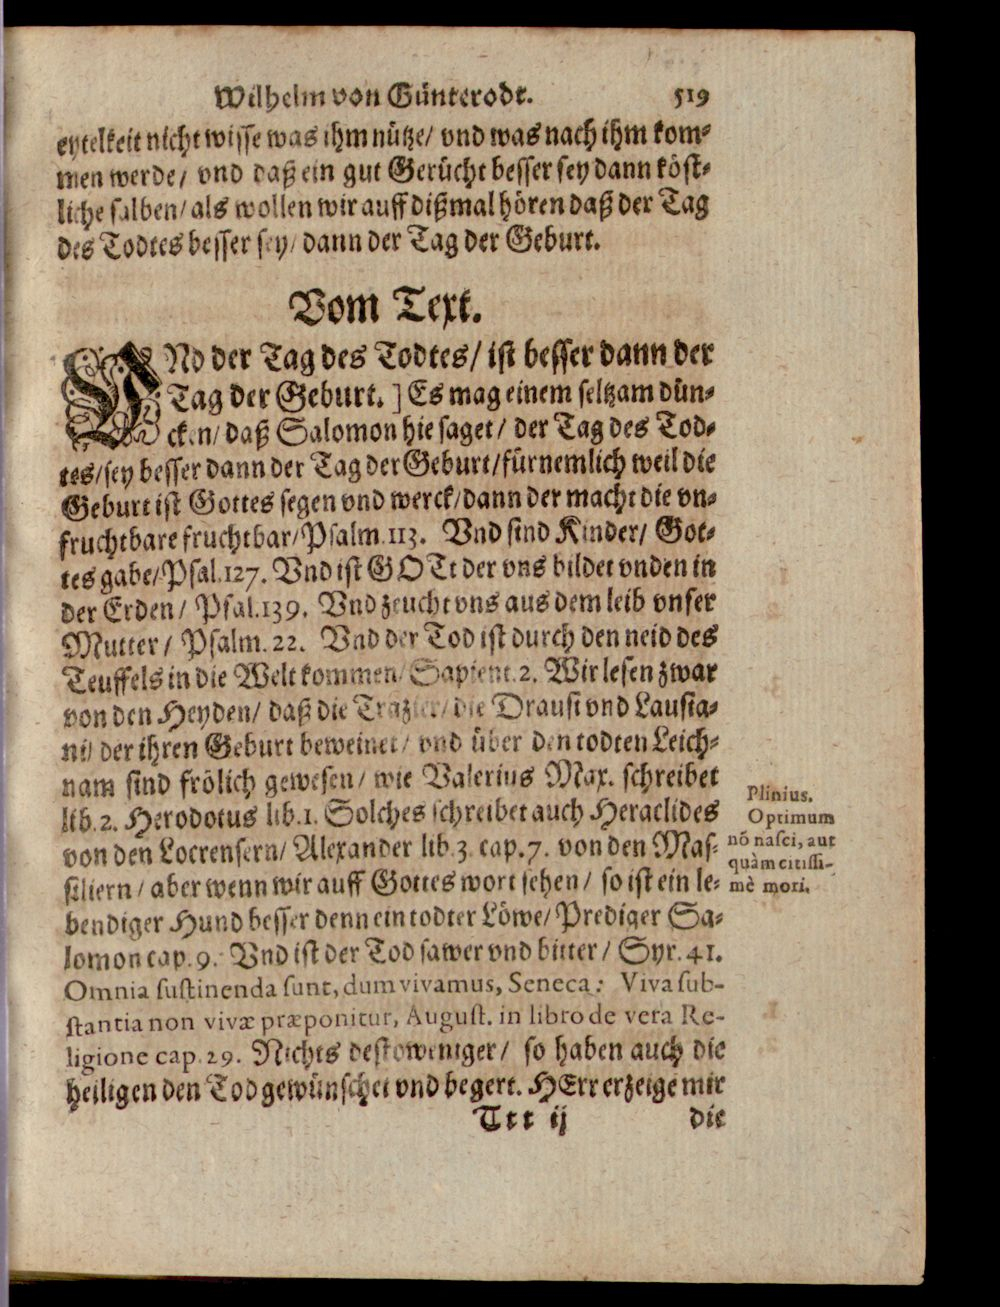 Wilhelm von Günterodt. 519
eytelkeit nicht wisse was ihm nütze/ vnd was nach ihm kom-
men werde/ vnd daß ein gut Gerücht besser sey dann köst-
liche salben/ als wollen wir auff dißmal hören daß der Tag
des Todtes besser sey/ dann der Tag der Geburt.
Vom Text.
VNd der Tag des Todtes/ ist besser dann der
Tag der Geburt.] Es mag einem seltzam dün-
cken/ daß Salomon hie saget/ der Tag des Tod-
tes/ sey besser dann der Tag der Geburt/ fürnemlich weil die
Geburt ist Gottes segen vnd werck/ dann der macht die vn-
fruchtbare fruchtbar/ Psalm. 113. Vnd sind Kinder/ Got-
tes gabe/ Psal. 127. Vnd ist GOTt der vns bildet vnden in
der Erden/ Psal. 139. Vnd zeucht vns aus dem leib vnser
Mutter/ Psalm. 22. Vnd der Tod ist durch den neid des
Teuffels in die Welt kommen/ Sapient. 2. Wir lesen zwar
von den Heyden/ daß die Trazier/ die Drausi vnd Lausia-
ni/ der ihren Geburt beweinet/ vnd über den todten Leich-
nam sind frölich gewesen/ wie Valerius Max. schreibet
lib. 2. Herodotus lib. 1. Solches schreibet auch Heraclides
von den Locrensern/ Alexander lib. 3. cap. 7. von den Mas-
siliern/ aber wenn wir auff Gottes wort sehen/ so ist ein le-
bendiger Hund besser denn ein todter Löwe/ Prediger Sa-
lomon cap. 9. Vnd ist der Tod sawer vnd bitter/ Syr. 41.
Omnia sustinenda sunt, dum vivamus, Seneca: Viva sub-
stantia non vivæ præponitur, August. in libro de vera Re-
ligione cap. 29. Nichts destoweniger/ so haben auch die
heiligen den Tod gewünschet vnd begert. HErr erzeige mir
Ttt ij die
Plinius.
Optimum
nõ nasci, aut
quàm citissi-
mè mori.